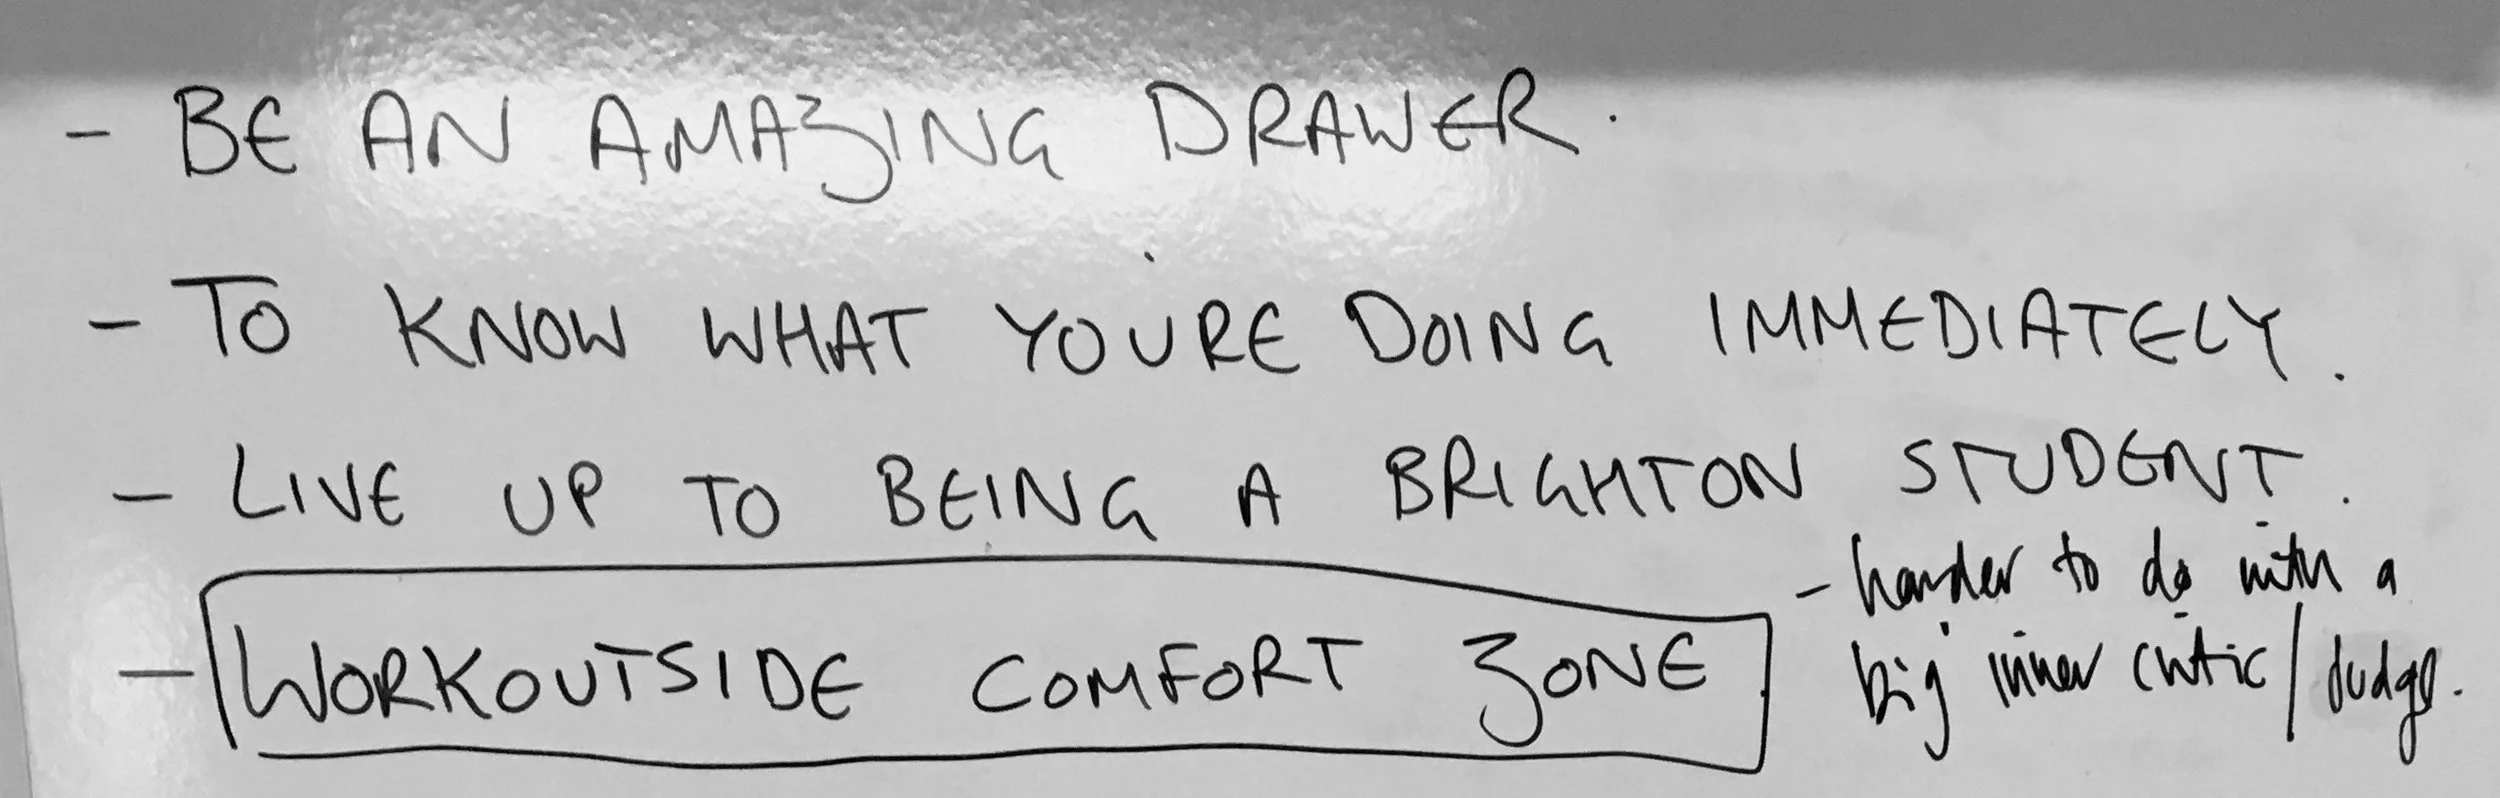 - BE AN AMAZING DRAWER.
- TO KNOW WHAT YOURE DOING IMMEDIATELY.
- LIVE UP TO BEING A BRIGHTON STUDENT.
- WORKOUTSIDE COMFORT ZONE
- harder to do with a
big inner critic / judge.